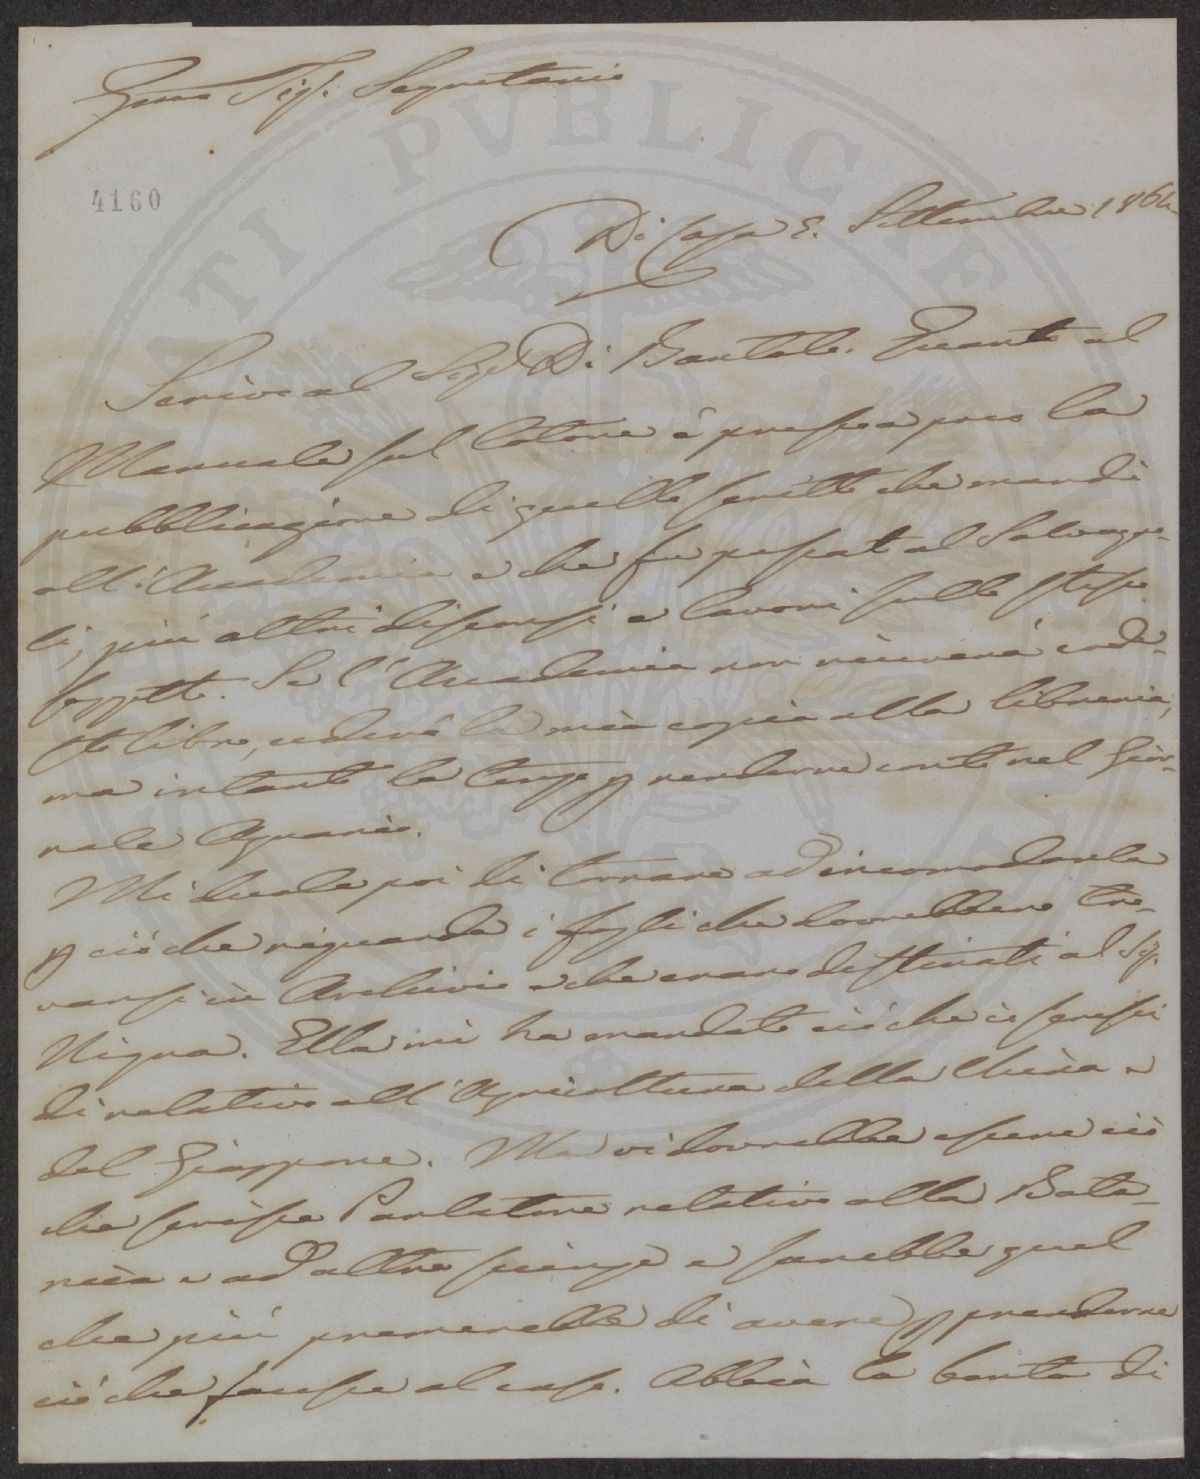 Sig.r Segretario
4160
Di Casa 5. Settembre 1864
Scrivo al Sig.r Di Bartolo. Quanto al
Manuale sul Cotone è presso a poco la
pubblicazione di quello scritto che mandò
all'Accademia e che fu passato al Salvagno-
li, più altri discorsi e lavori sullo stesso
soggetto. Se l'Accademia non riceverà code-
sto libro, cederò la mia copia alla libreria,
ma intanto la tengo p renderne conto nel Gior-
nale Agrario.
Mi duole poi di tornare ad incomodarla
p ciò che riguarda i fogli che dovrebbero tro-
varsi in Archivio e che erano destinati al Sig.
Nigra. Ella mi ha mandato ciò che io scrissi
di relativo all'Agricoltura della China e
del Giappone. Ma vi dovrebbe essere ciò
che scrisse Parlatore relativo alla Bota-
nica e ad altre scienze e sarebbe quel
che più premerebbe di avere p prenderne
ciò che facesse al caso. Abbia la bontà di
PUBLICAE